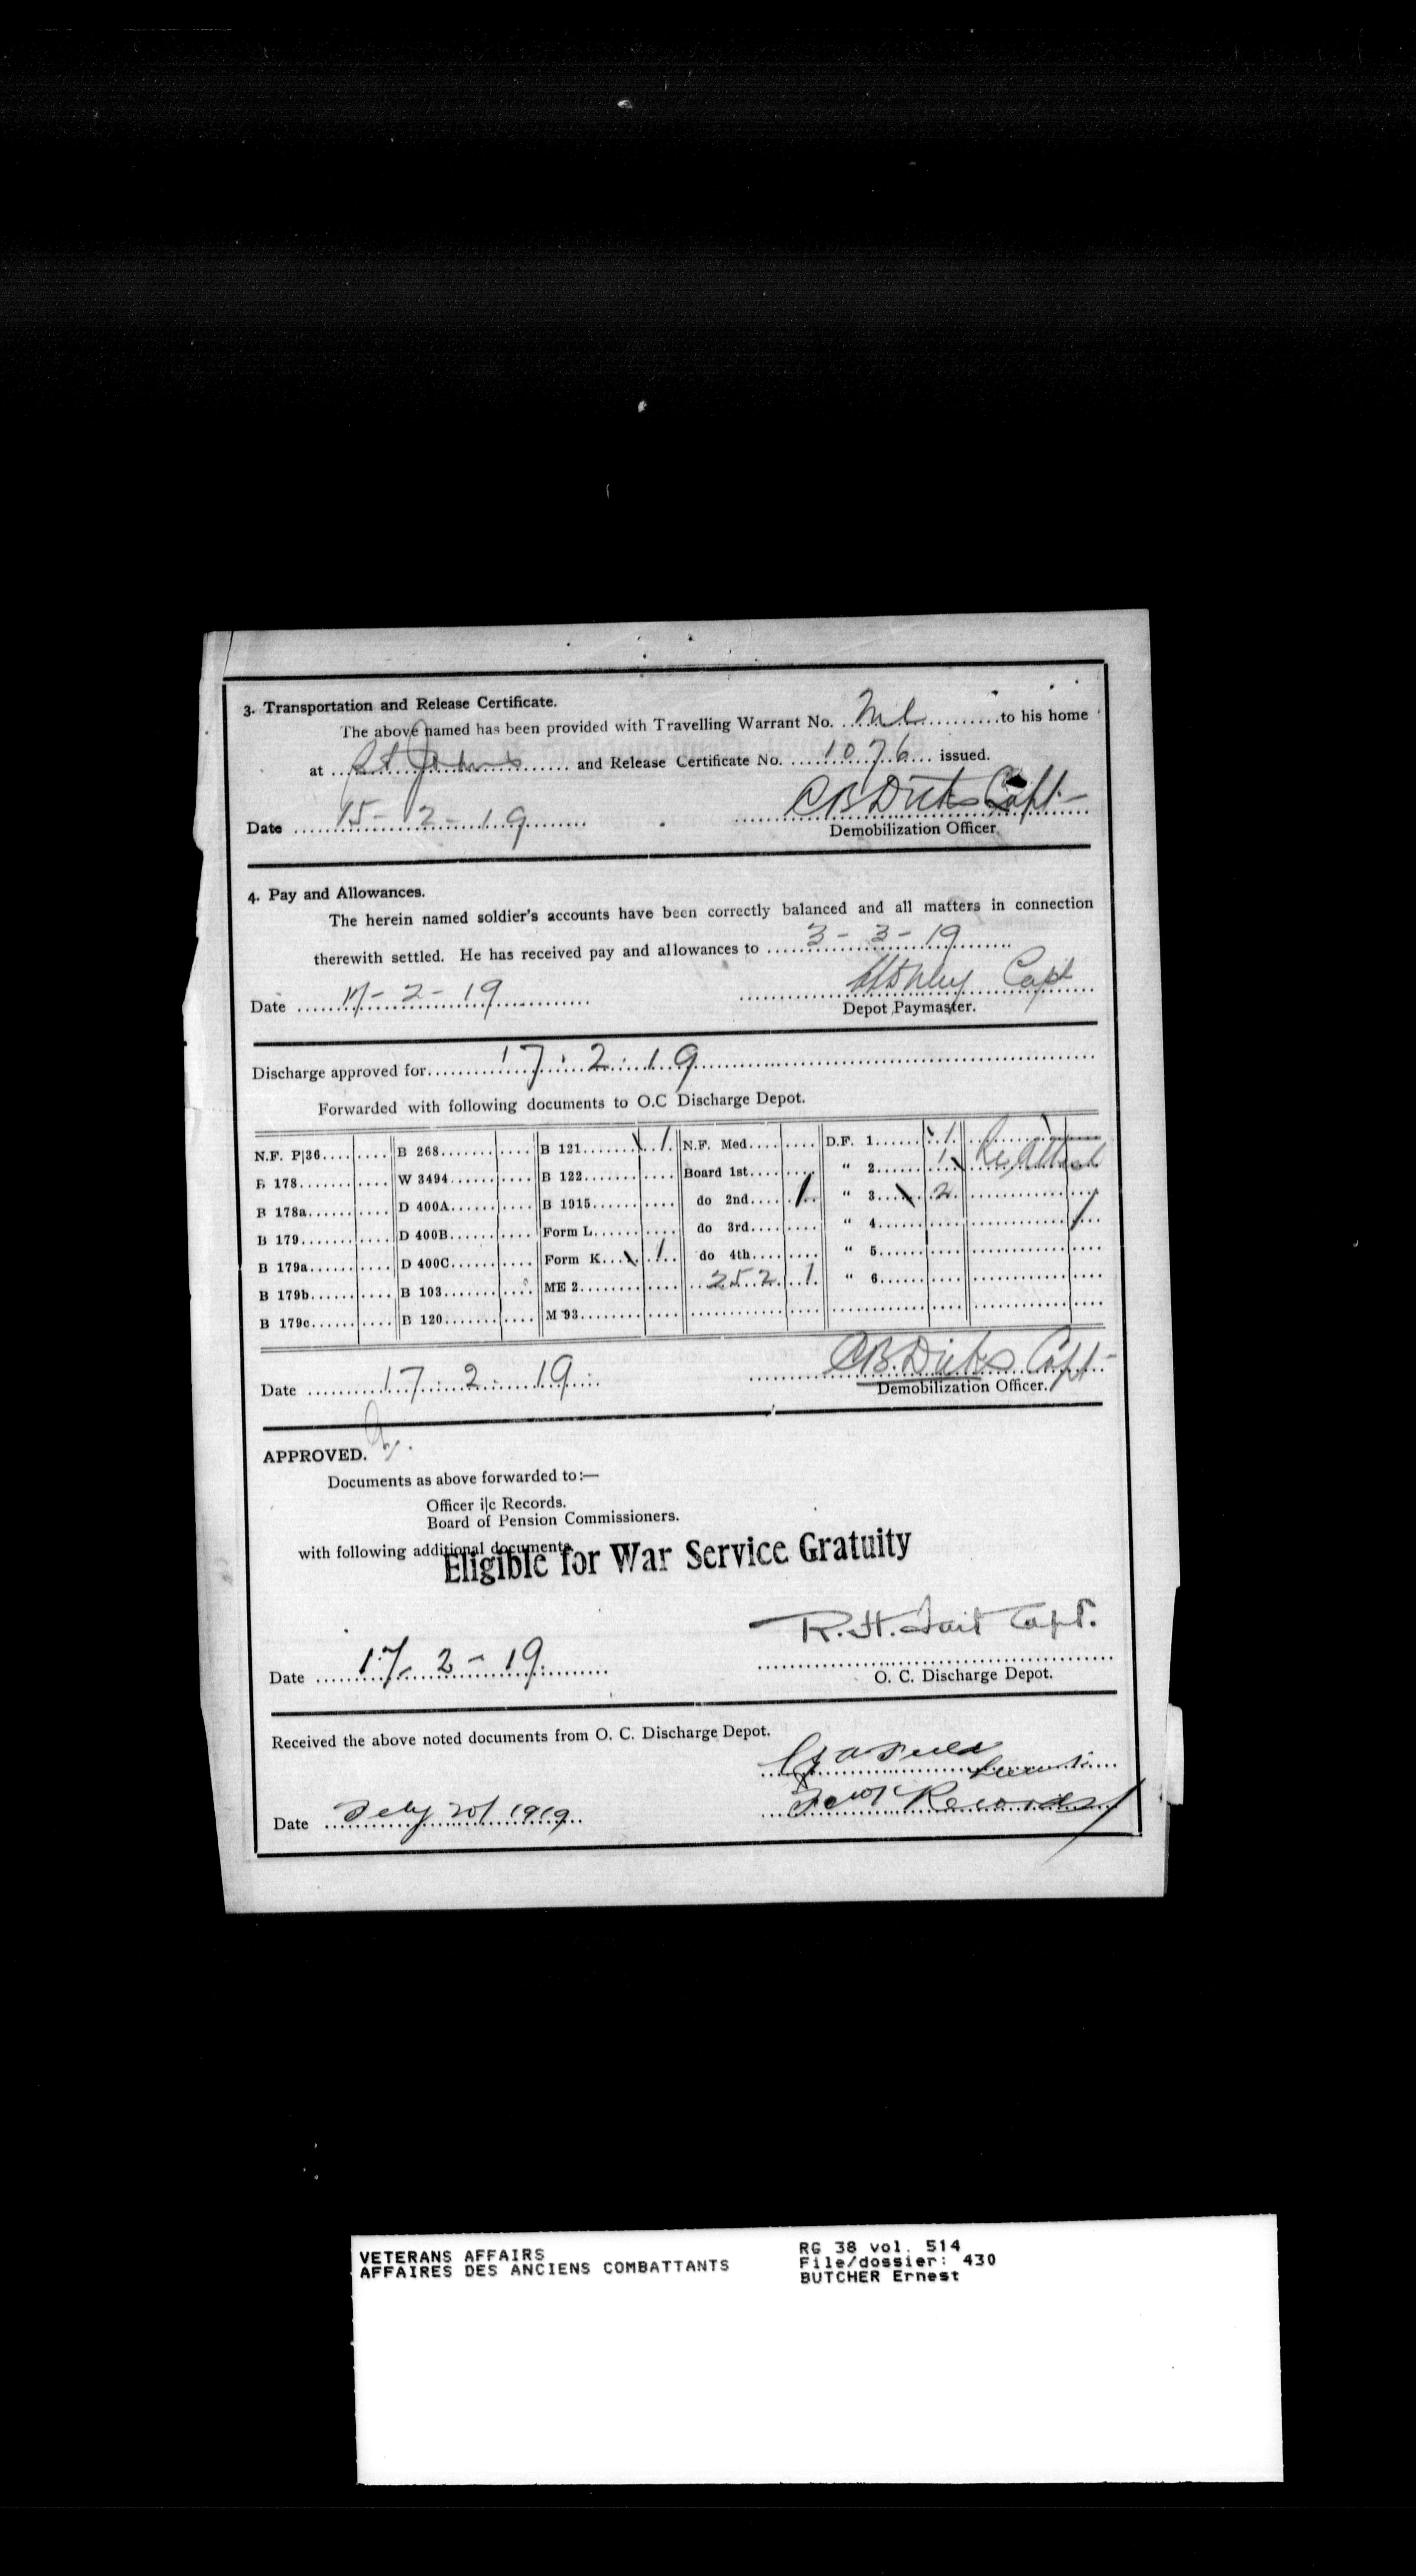 3. Transportation and Release Certificate.
The above named has been provided with Travelling Warrant No. Nil to his home
at St Johns and Release Certificate No. 1076 issued.
CB Dicks Capt.
Date 15-2-19
Demobilization Officer.
4. Pay and Allowances.
The herein named soldier's accounts have been correctly balanced and all matters in connection
therewith settled. He has received pay and allowances to 3-3-19
Capt
Date 17-2-19
Depot Paymaster.
Discharge approved for 17.2.19
Forwarded with following documents to O.C Discharge Depot.
N.F. P|36 B 268 B 121 1 N.F. Med. D.F. 1 1
B 178 W 3494 B 122 Board 1st " 2 1
B 178a D 400A B 1915 do 2nd 1 " 3 2
B 179 D 400B Form L do 3rd " 4
B 179a D 400C Form K 1 do 4th " 5
B 179b B 103 ME 2 252 1 " 6
B 179c B 120 M 93
Date 17.2.19 CB. Dicks Capt.
Demobilization Officer.
APPROVED.
Documents as above forwarded to:—
Officer i|c Records.
Board of Pension Commissioners.
with following additional documents
Eligible for War Service Gratuity
R.H. Tait Capt.
Date 17-2-19
O. C. Discharge Depot.
Received the above noted documents from O. C. Discharge Depot.
Records
Date Feby 20/1919
VETERANS AFFAIRS
AFFAIRES DES ANCIENS COMBATTANTS
RG 38 vol. 514
File/dossier: 430
BUTCHER Ernest